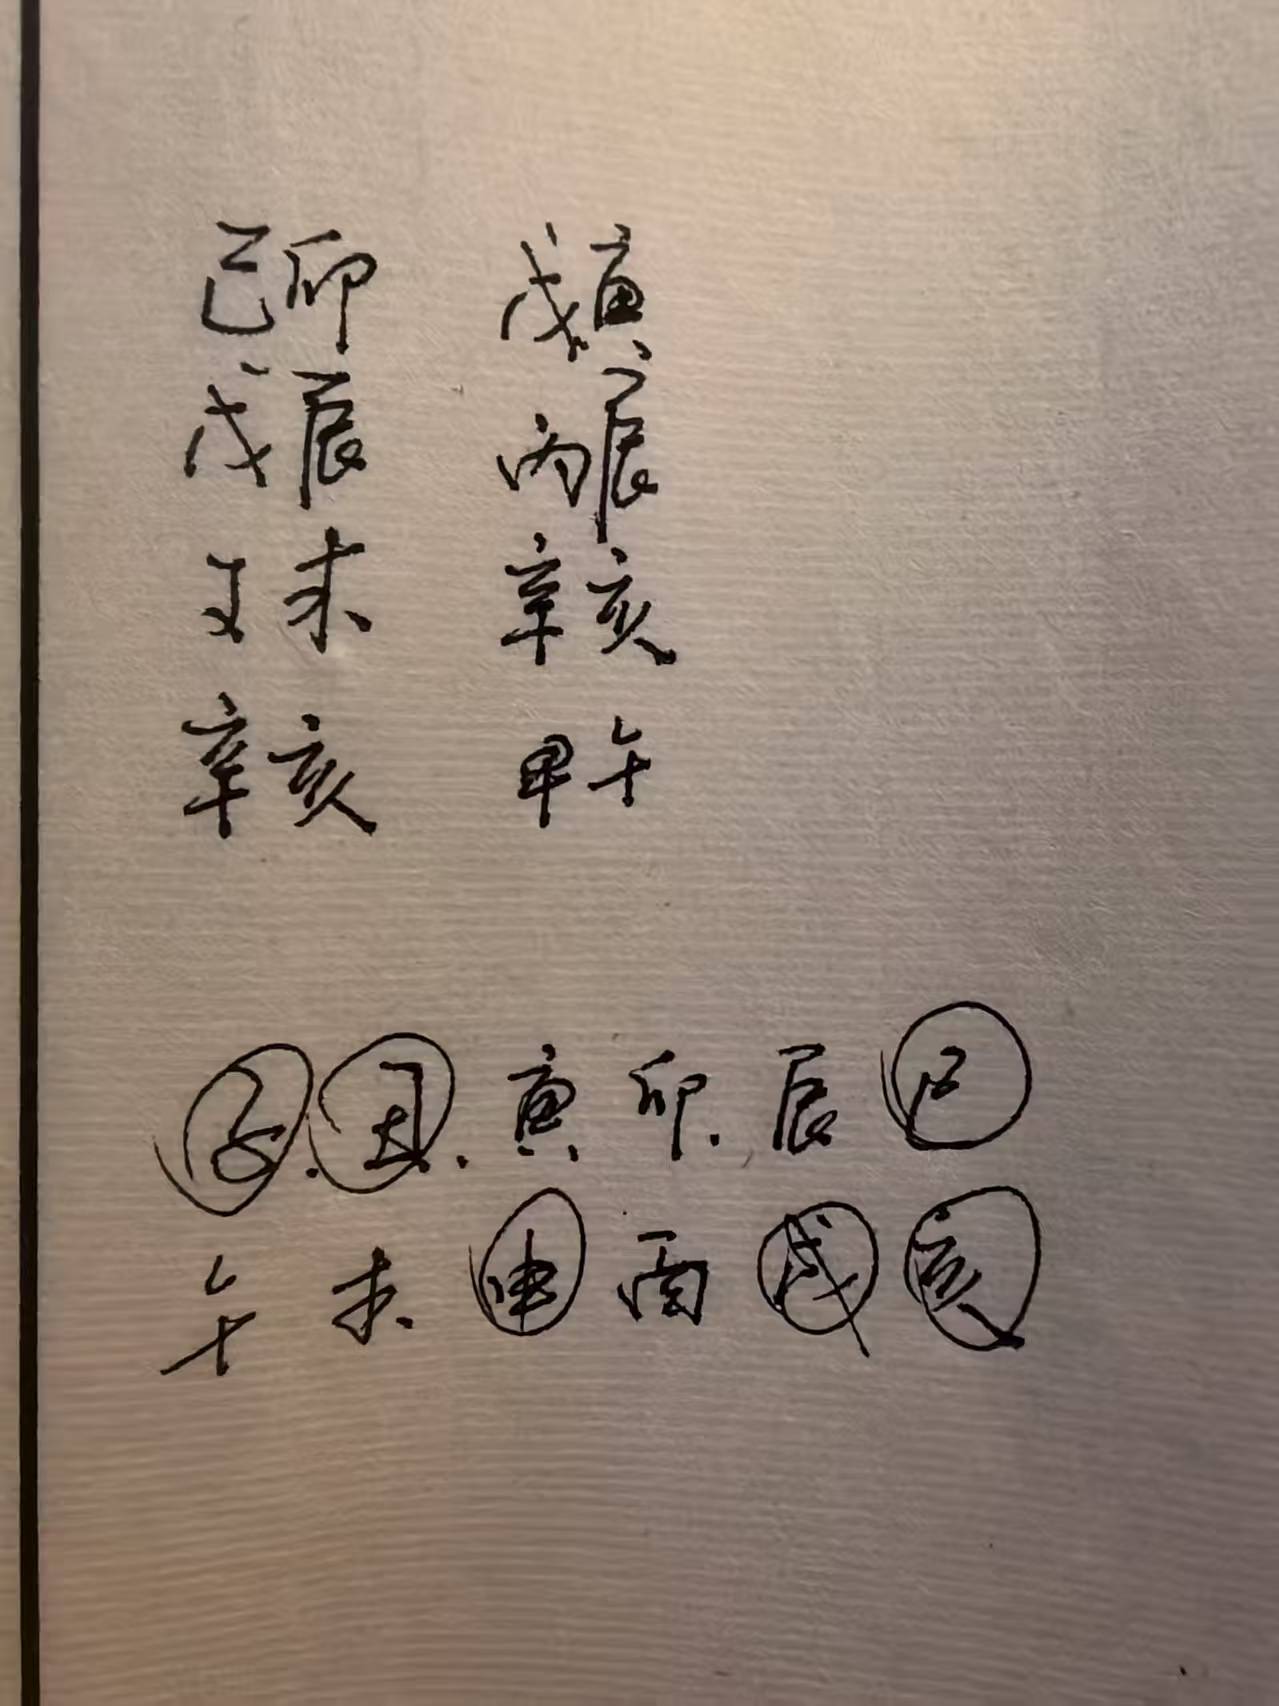 己卯 戊寅
戊辰 丙辰
未 辛亥
辛亥 甲午
子.丑.寅卯.辰巳
午未申酉戌亥